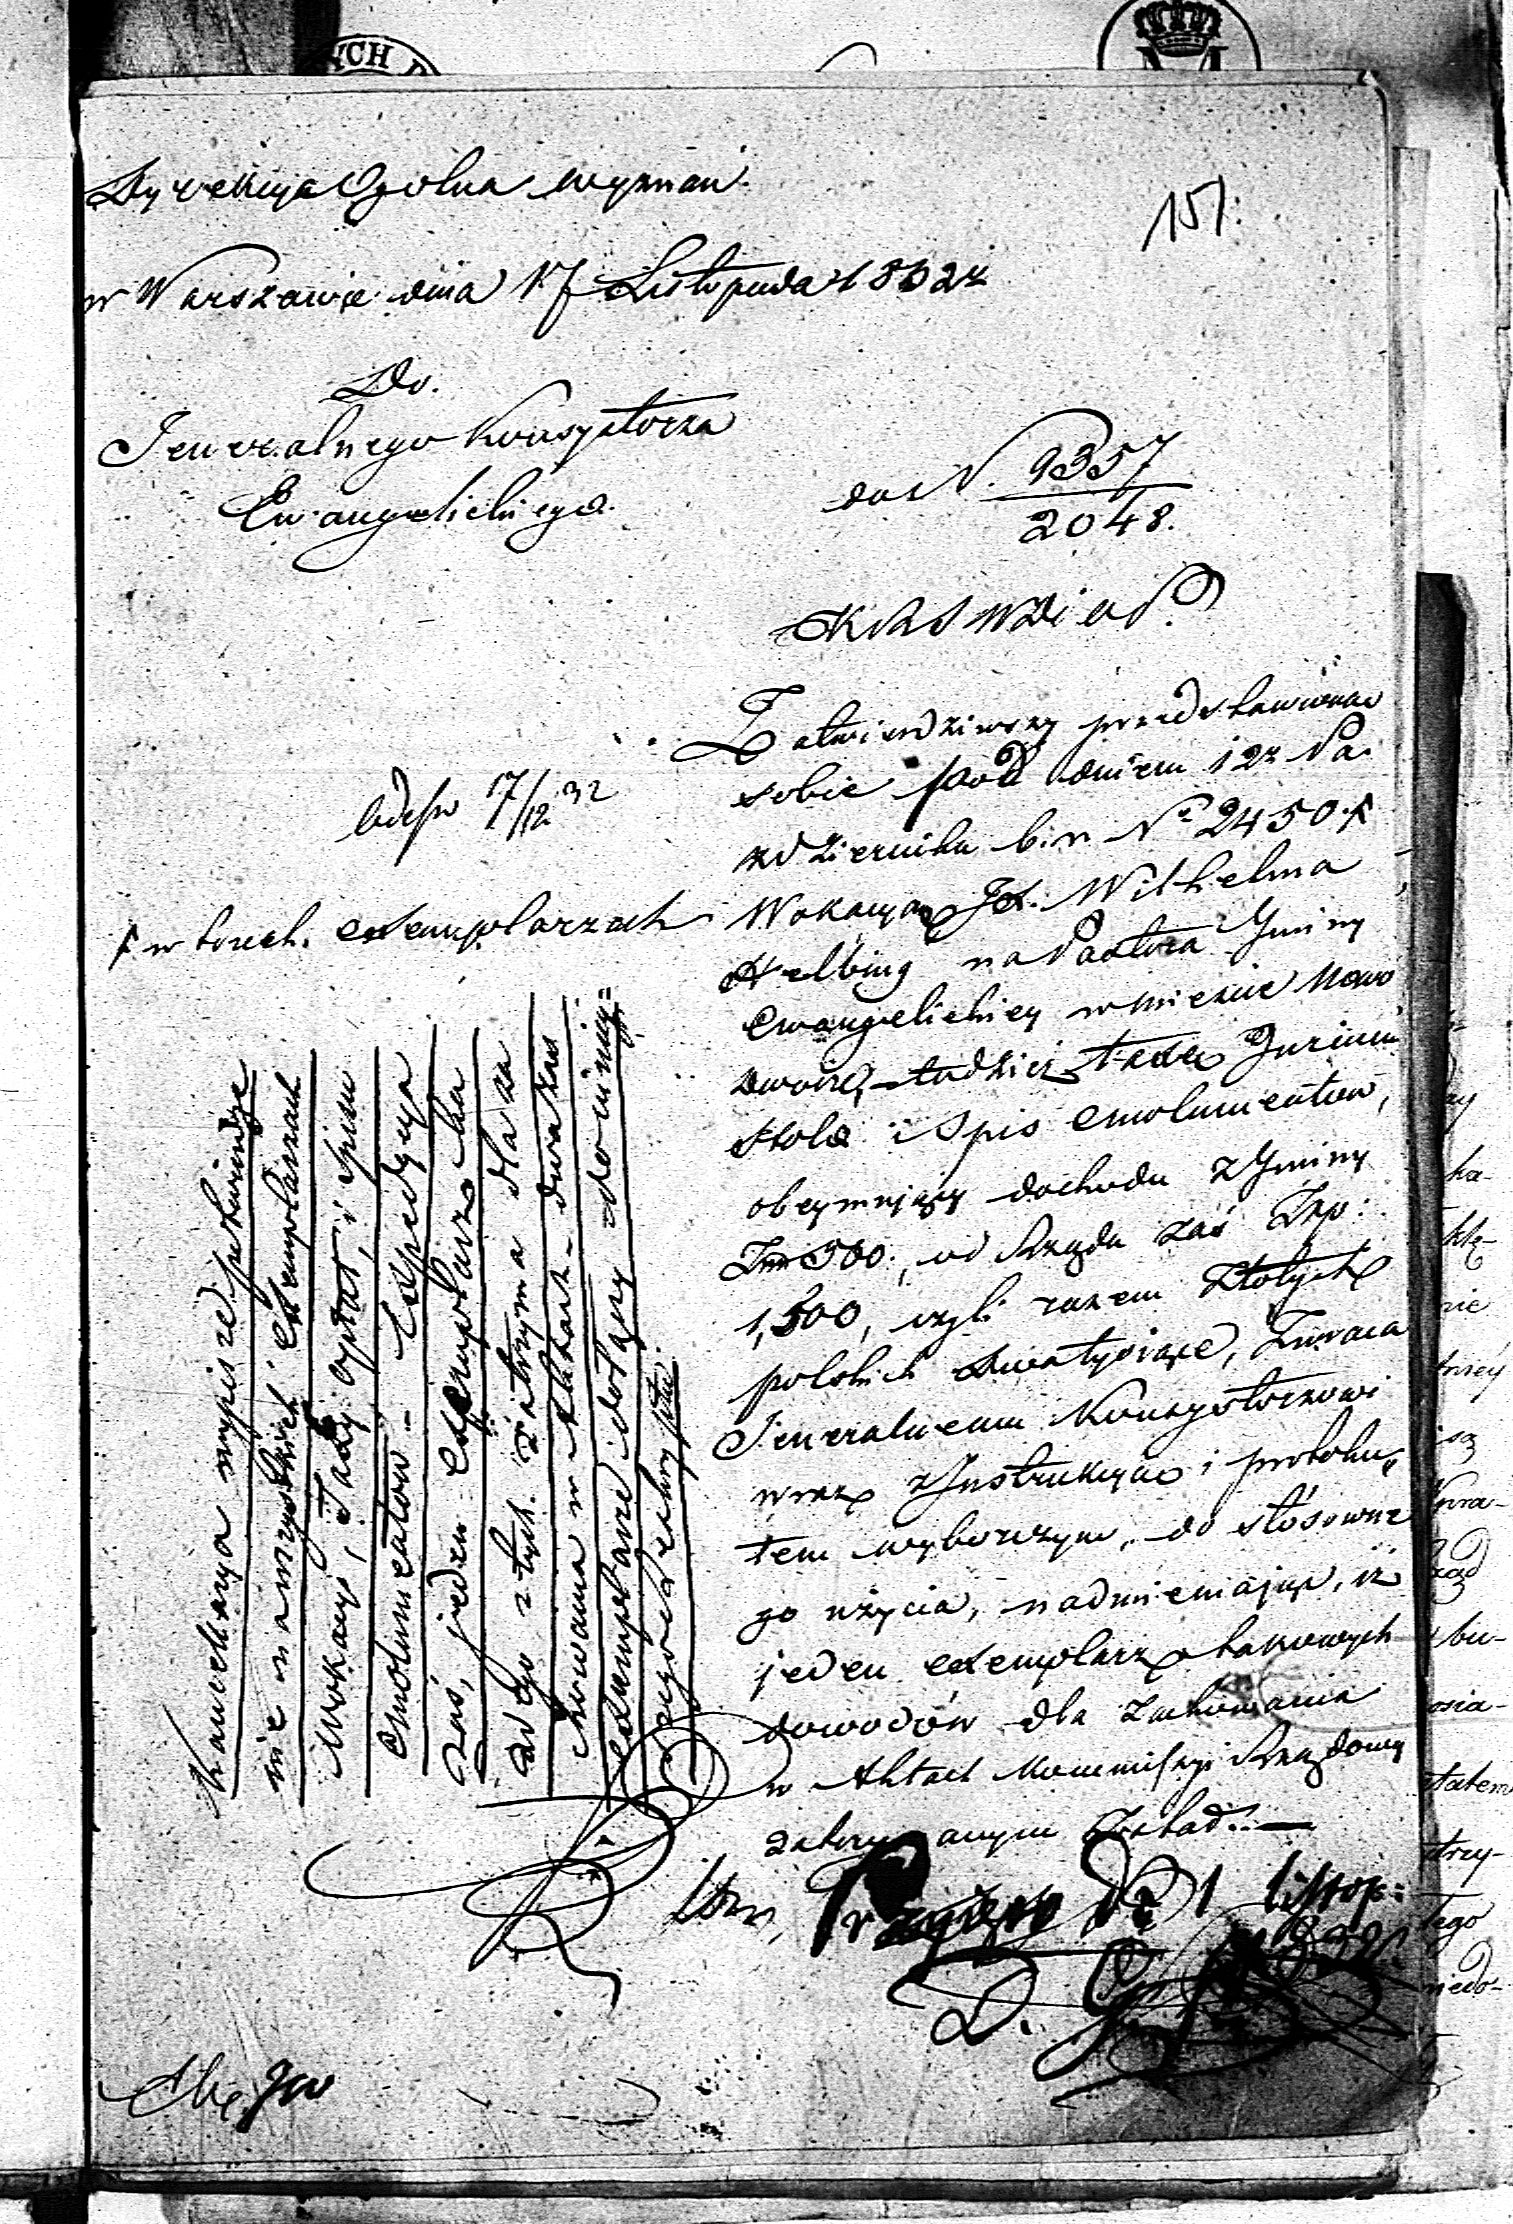 Dyrekcya Ogolna wyznań.
151.
w Warszawie dnia 17 Listopada 1832 r
Do.
Jeneralnego Konsystorza
Ewangelickiego.
do N. 9357
2048.
Zatwierdziwszy przedstawioną
sobie pod dniem 12 z Pa-
zdziernika b. r. Nº 2450.
Wokacyą JX. Wilhelma
Helbing na Pastora Gminy
Ewangelickiey w mieście Nowo
dworze, tudzież taxę Jurium
Stolæ i Spis emolumentow,
obeymujący dochodu z Gminy
500., od Rządu zaś Złp:
1,500, czyli razem Złotych
polskich dwatysiące, Zwraca
Jeneralnemu Konsystorzowi
wraz z Instrukcyą i protoku-
łem wyborczym, do stósowne
go użycia, nadmieniając, iż
jeden exemplarz takowych
dowodów dla zachowania
w Aktach Kommissyi Rządowey
zatrzymanym Został.
17/12 32
w trzech exemplarzach
Kancellarya wypisze potwierdze
nie na wszystkich exemplarzach
Wokacyi, Taxy opłat, i Spisu
Emolumentow - Expedycya
zaś, jeden exemplarz ka
żdego z tych zatrzyma dla za
chowania w aktach - dwa zaś
exemplarze dołączy do niniey-
szego
listop: